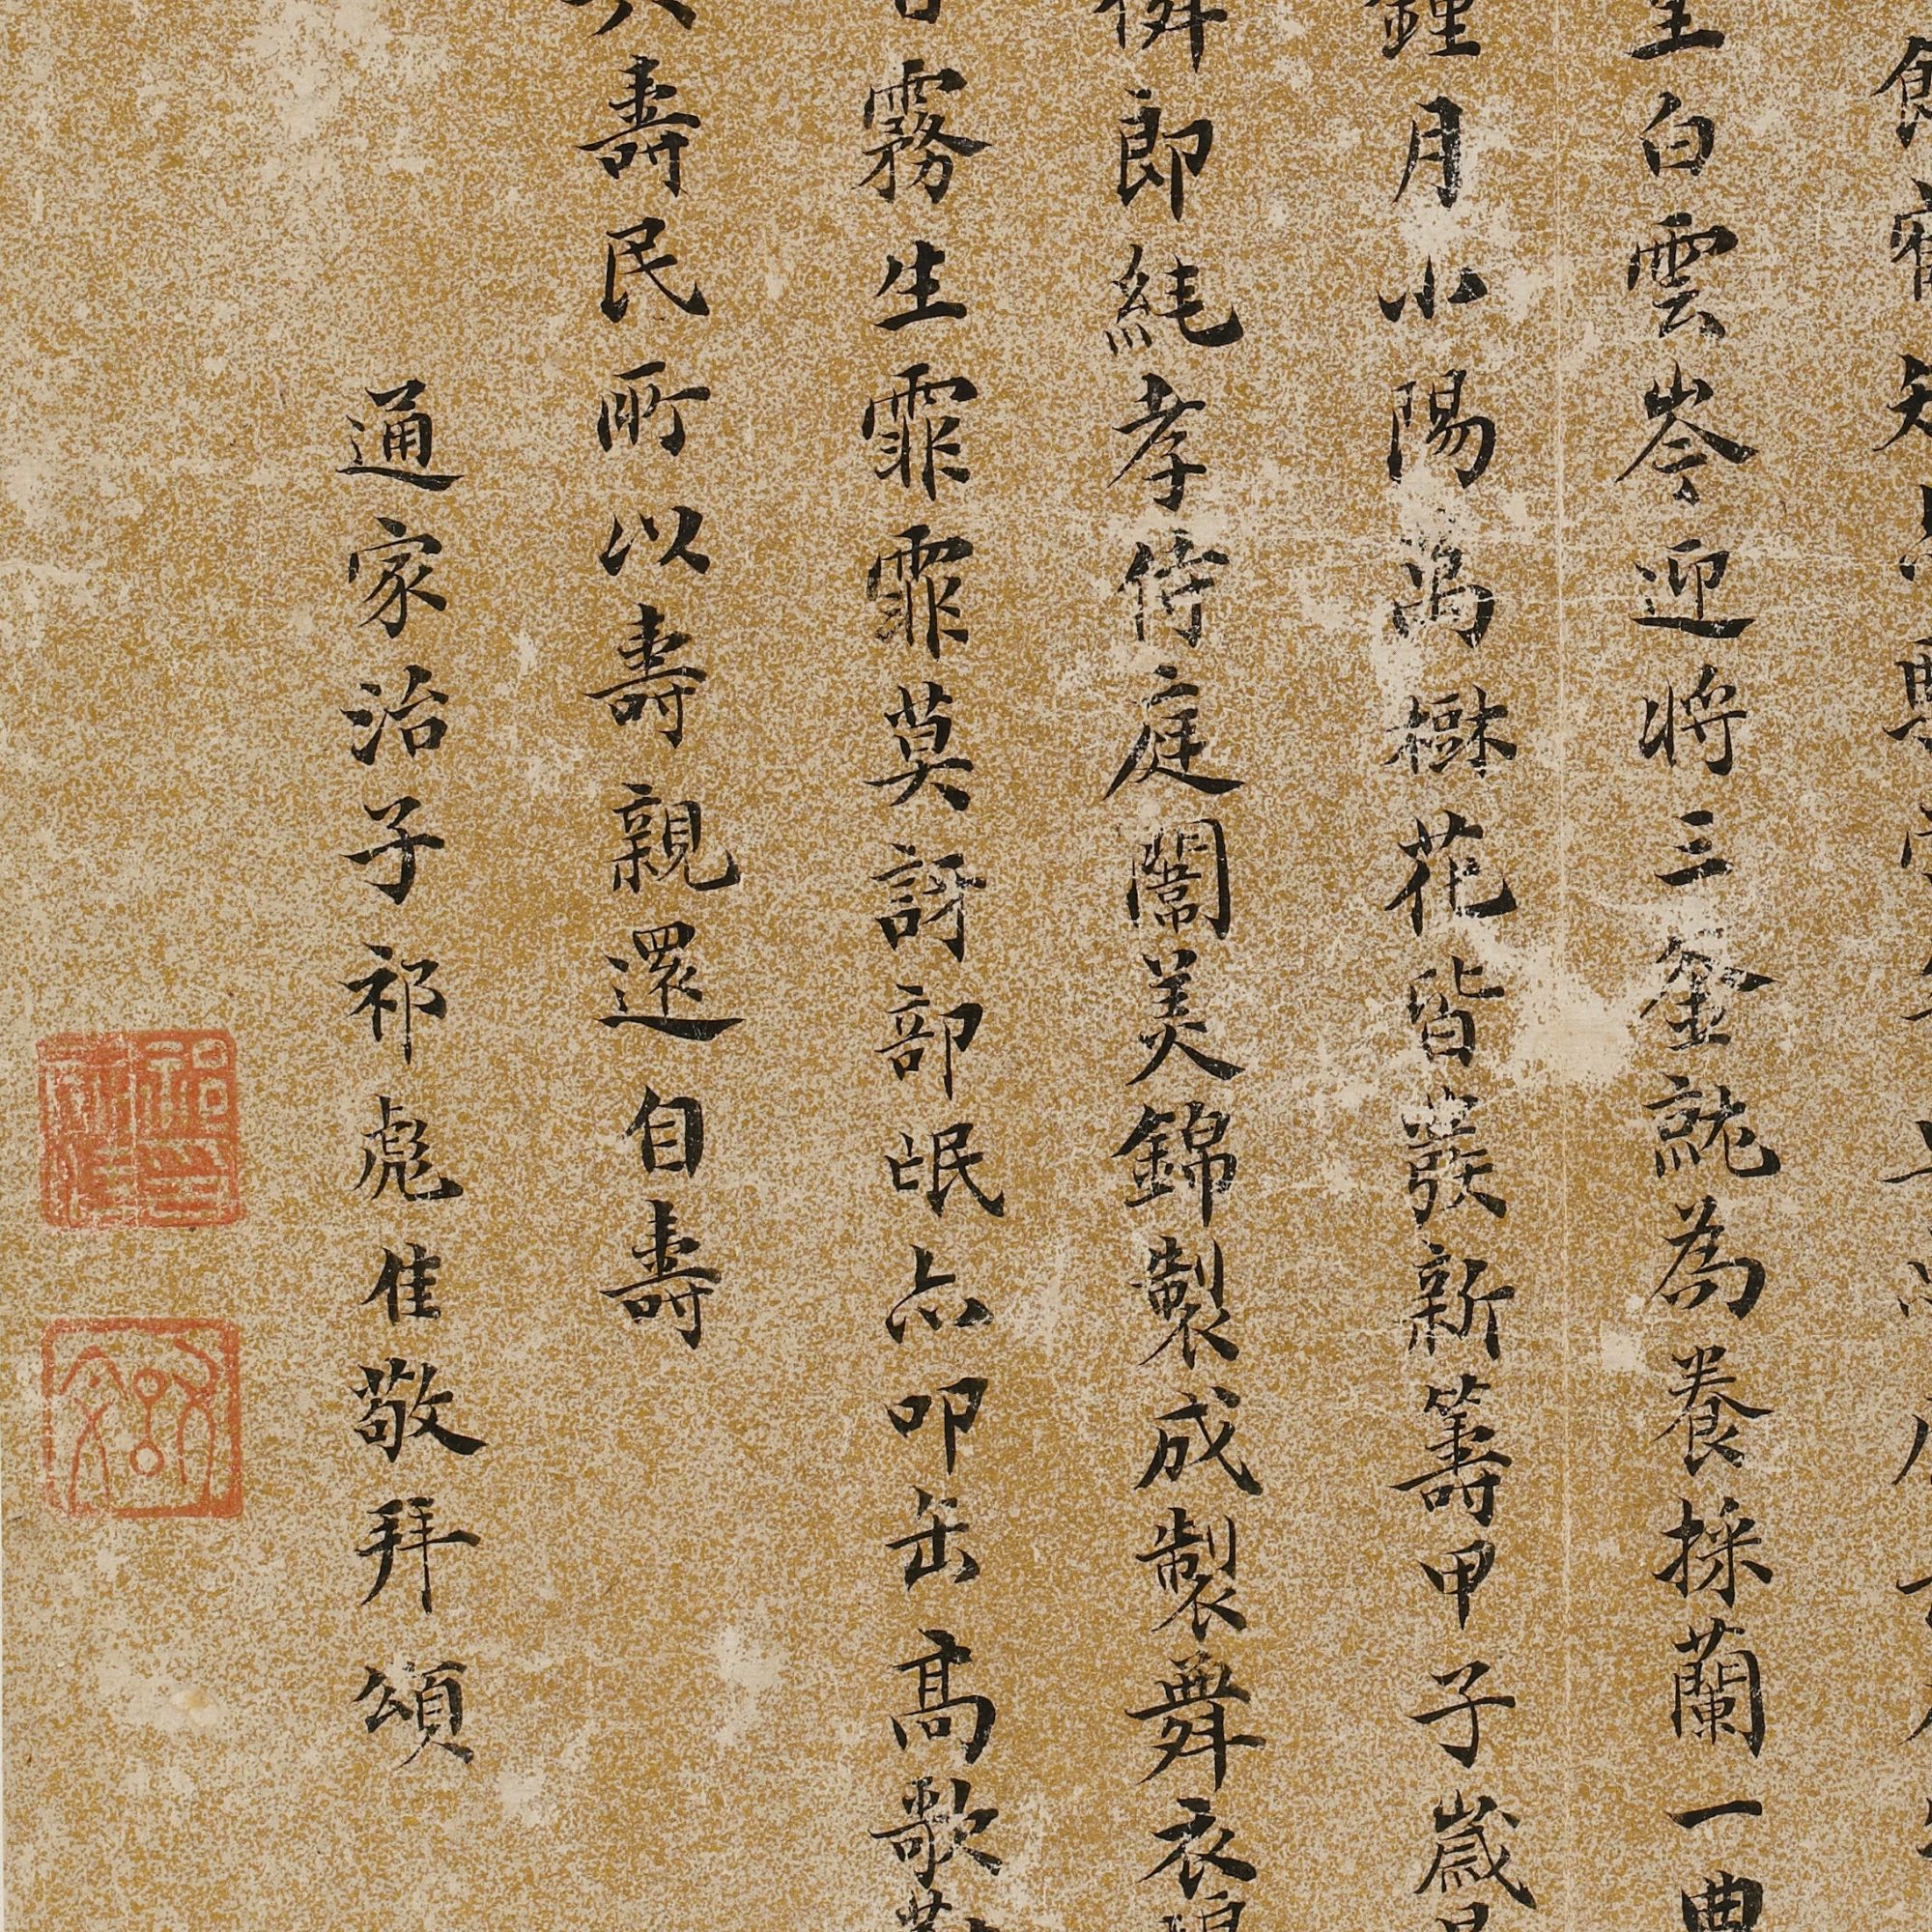 館
白雲岑迎將三釜就為養採蘭一曲
鍾月小陽萬樹花皆發新籌甲子歲
郎純孝侍庭闈美錦製成製舞衣
霧生霏霏莫訝部氓亦叩缶高歌
壽民所以壽親還自壽
通家治子祁彪佳敬拜頌